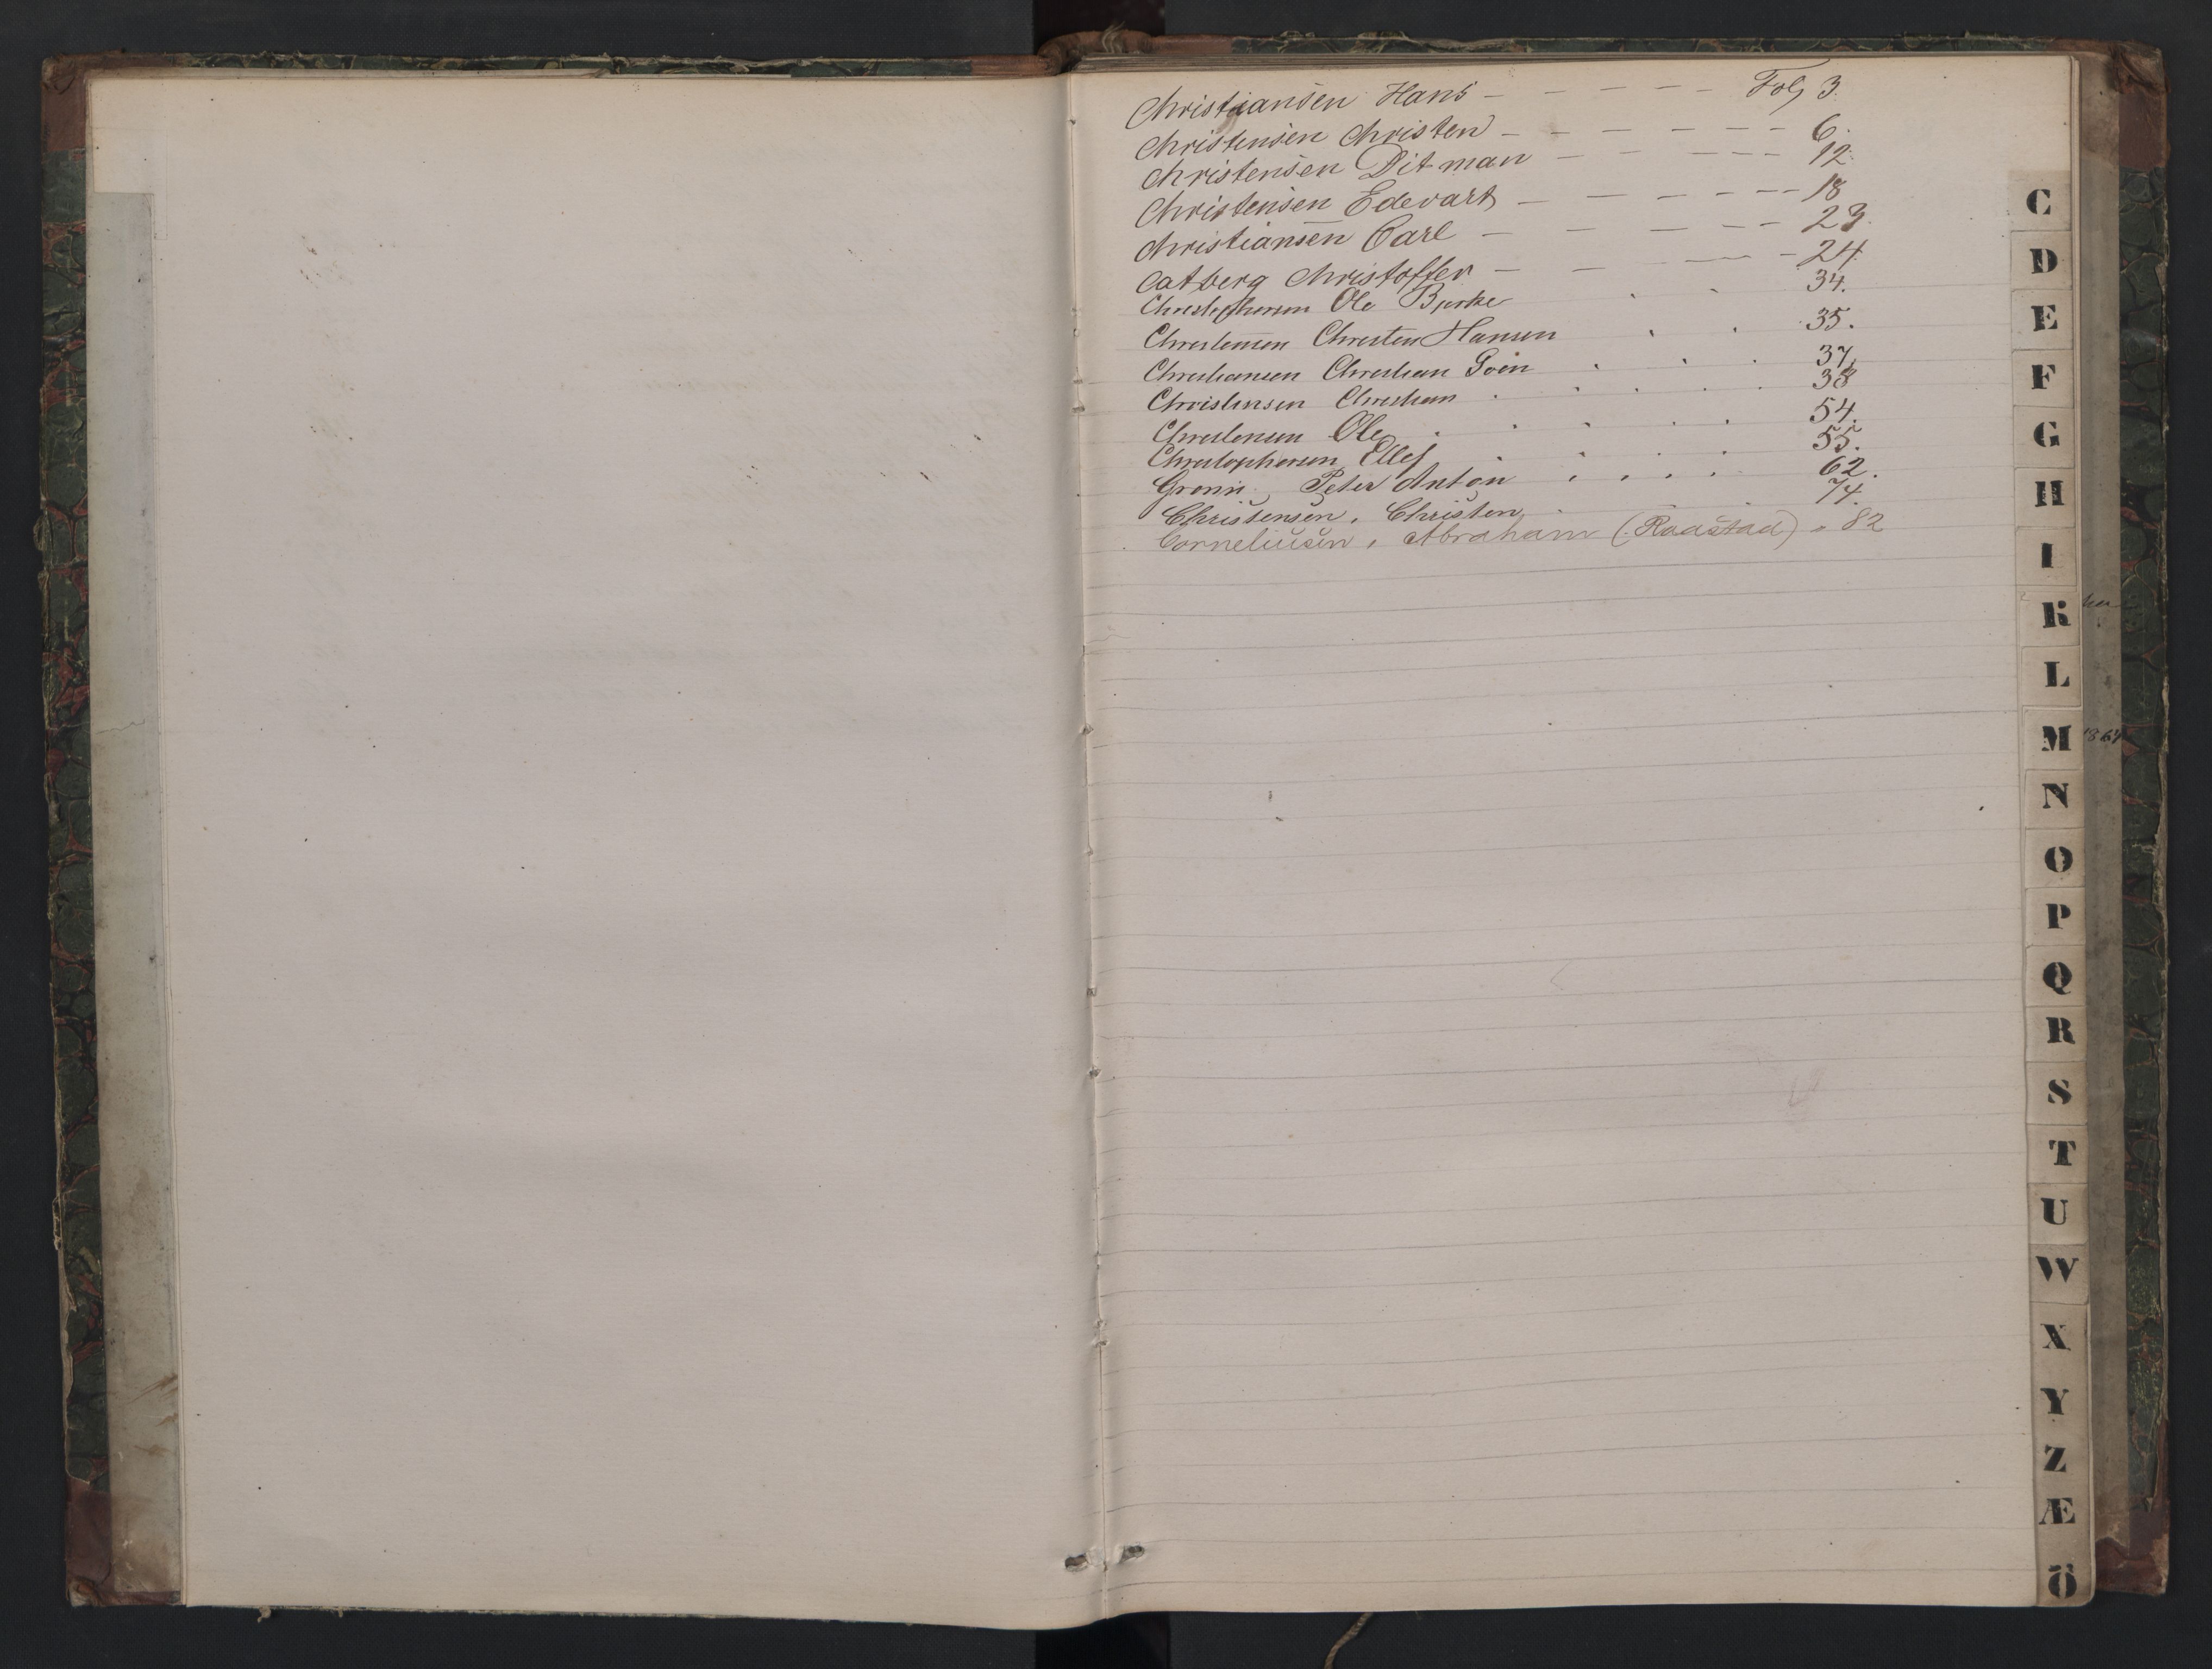 Christiansen Hans - - - - - - Fol, 3.
Christensen Christen - - - - - - - 6.
Christensen Ditman - - - - - 12.
Christensen Edevart - - - - - - - 18
Christiansen Carl - - - - - - 23.
Catberg Christoffer - - - - - 24.
Christophersen Ole Byrke . . 34.
Christensen Christen Hansen . . . 35.
Christiansen Christian Goen . . . 37.
Christensen Christian . . . . . 38
Christensen Ole . . . . . 54.
Christophersen Ellef . . . . 55.
Peter Anton . . . . 62.
Christensen, Christen . . . 74.
Corneliusen, Abraham (Raastad) " 82
C
D
E
F
G
H
I
K
L
M
N
O
P
Q
R
S
T
U
W
X
Y
Z
Æ
Ö